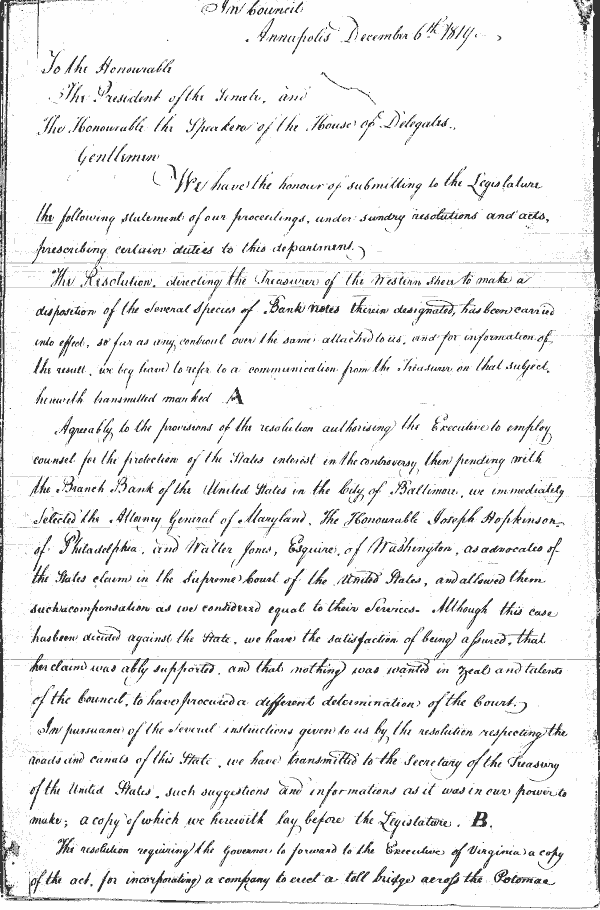 In Council
Annapolis December 6th 1819.
To the Honourable
The President of the Senate, and
The Honourable the Speaker of the House of Delegates.,
Gentlemen
We have the honour of submitting to the Legislature
the following statement of our proceedings, under sundry resolutions and acts,
prescribing certain duties to this department.
The Resolution, directing the Treasurer of the Western Shore to make a
disposition of the Several Species of Bank notes therein designated, has been carried
into effect, so far as any controul over the same attached to us, and for information of
the result, we beg leave to refer to a communication from the Treasurer on that subject,
herewith transmitted marked A
Agreably to the provisions of the resolution authorising the Executive to employ
counsel for the protection of the States interest in the controversy, then pending with
the Branch Bank of the United States in the City of Baltimore, we immediately
Selected the Attorney General of Maryland, The Honourable Joseph Hopkinson
of Philadelphia, and Walter Jones, Esquire, of Washington, as advocates of
the States claim in the Supreme Court of the United States, and allowed them
such compensation as we considered equal to their Services. Although this case
has been decided against the State, we have the satisfaction of being assured, that
her claim was ably supported, and that nothing was wanted in zeal and talents
of the Council, to have procured a different determination of the Court.
In pursuance of the Several instructions given to us by the resolution respecting the
roads and canals of this State, we have transmitted to the Secretary of the Treasury
of the United States, such suggestions and informations as it was in our power to
make; a copy of which we herewith lay before the Legislature. B.
The resolution requiring the Governor to forward to the Executive of Virginia a copy
of the act, for incorporating a company to erect a toll bridge across the Potomac